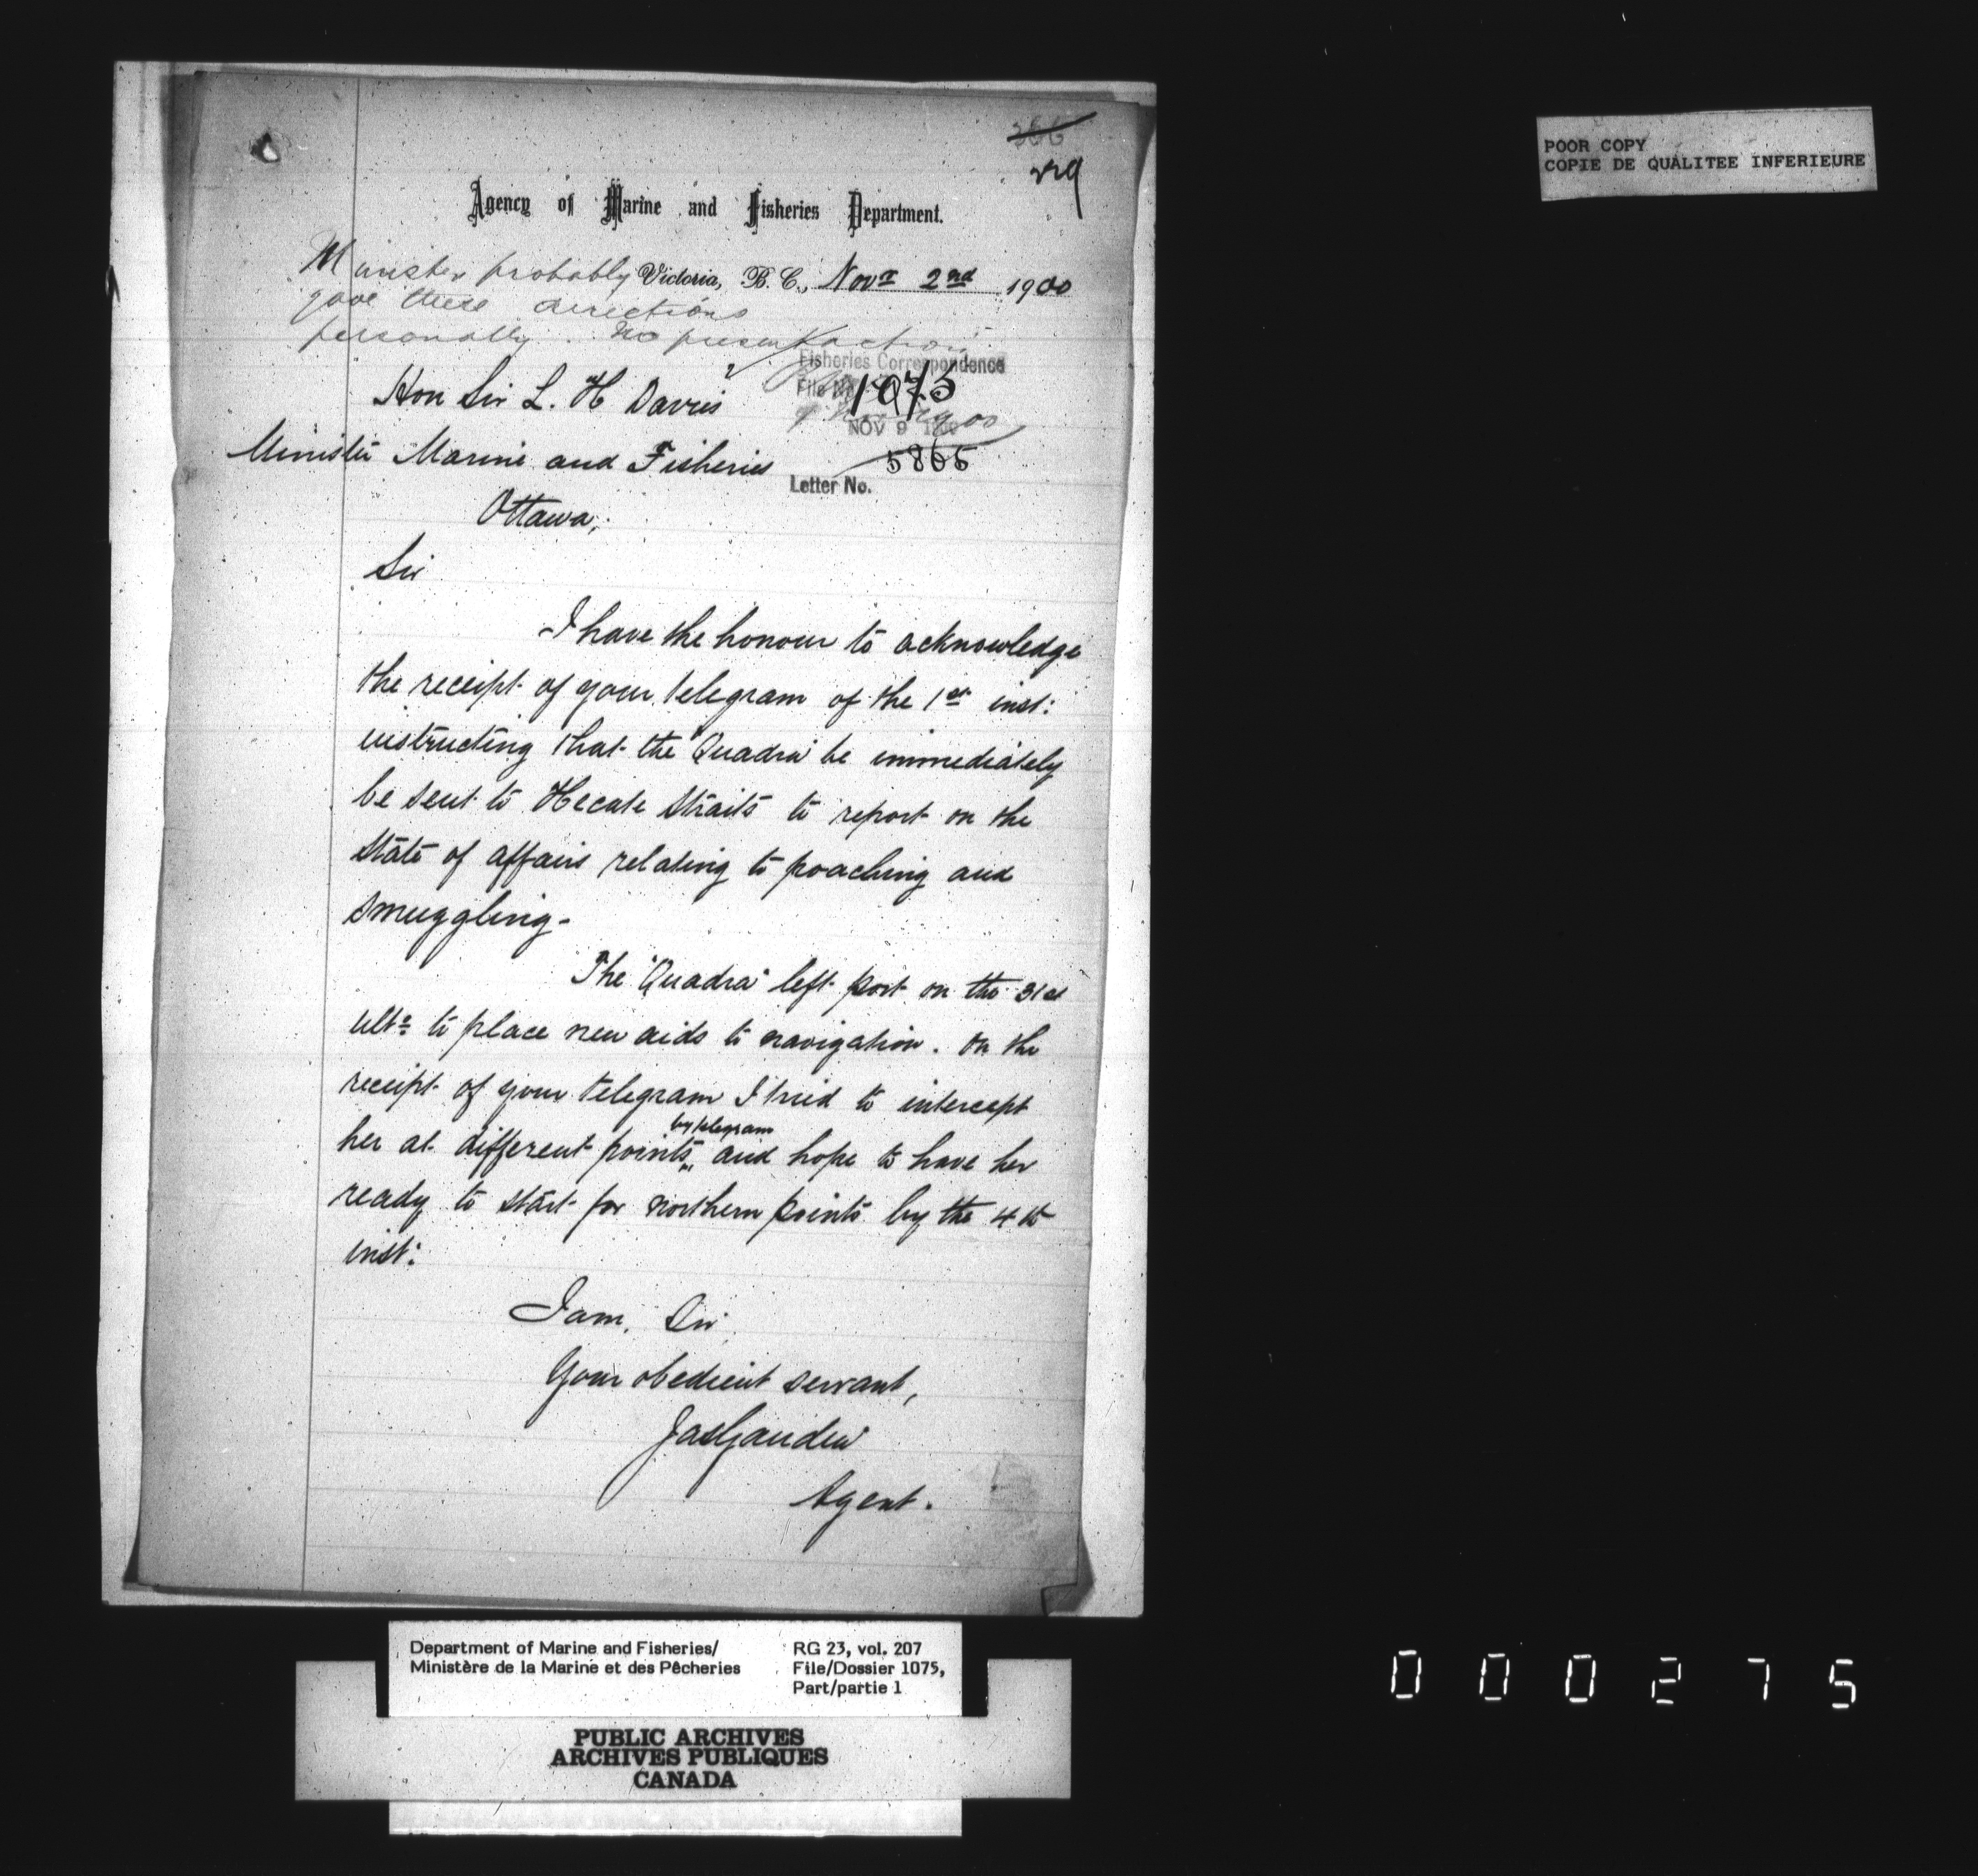 366
229
Agency of Marine and Fisheries Department.
Victoria, B. C., Novr 2nd 1900
Minister probably
gave these directions
personally. No present action.
Fisheries Correspondence
File No. 1075
9 Nov 1900
NOV 9 1900
5865
Letter No.
Hon Sir L. H Davies
Minister Marine and Fisheries
Ottawa,
Sir
I have the honour to acknowledge
the receipt of your telegram of the 1st inst:
instructing that the "Quadra" be immediately
be sent to Hecate Straits to report on the
state of affairs relating to poaching and
smuggling-
The "Quadra" left port on the 31st
ulto to place new aids to navigation. On the
receipt of your telegram I tried to intercept
her at different points by telegram and hope to have her
ready to start for northern points by the 4th
inst:
I am, Sir
Your obedient servant,
Jas Gaudin
Agent.
POOR COPY
COPIE DE QUALITEE INFERIEURE
Department of Marine and Fisheries/
Ministère de la Marine et des Pêcheries
RG 23, vol. 207
File/Dossier 1075,
Part/partie 1
PUBLIC ARCHIVES
ARCHIVES PUBLIQUES
CANADA
000275